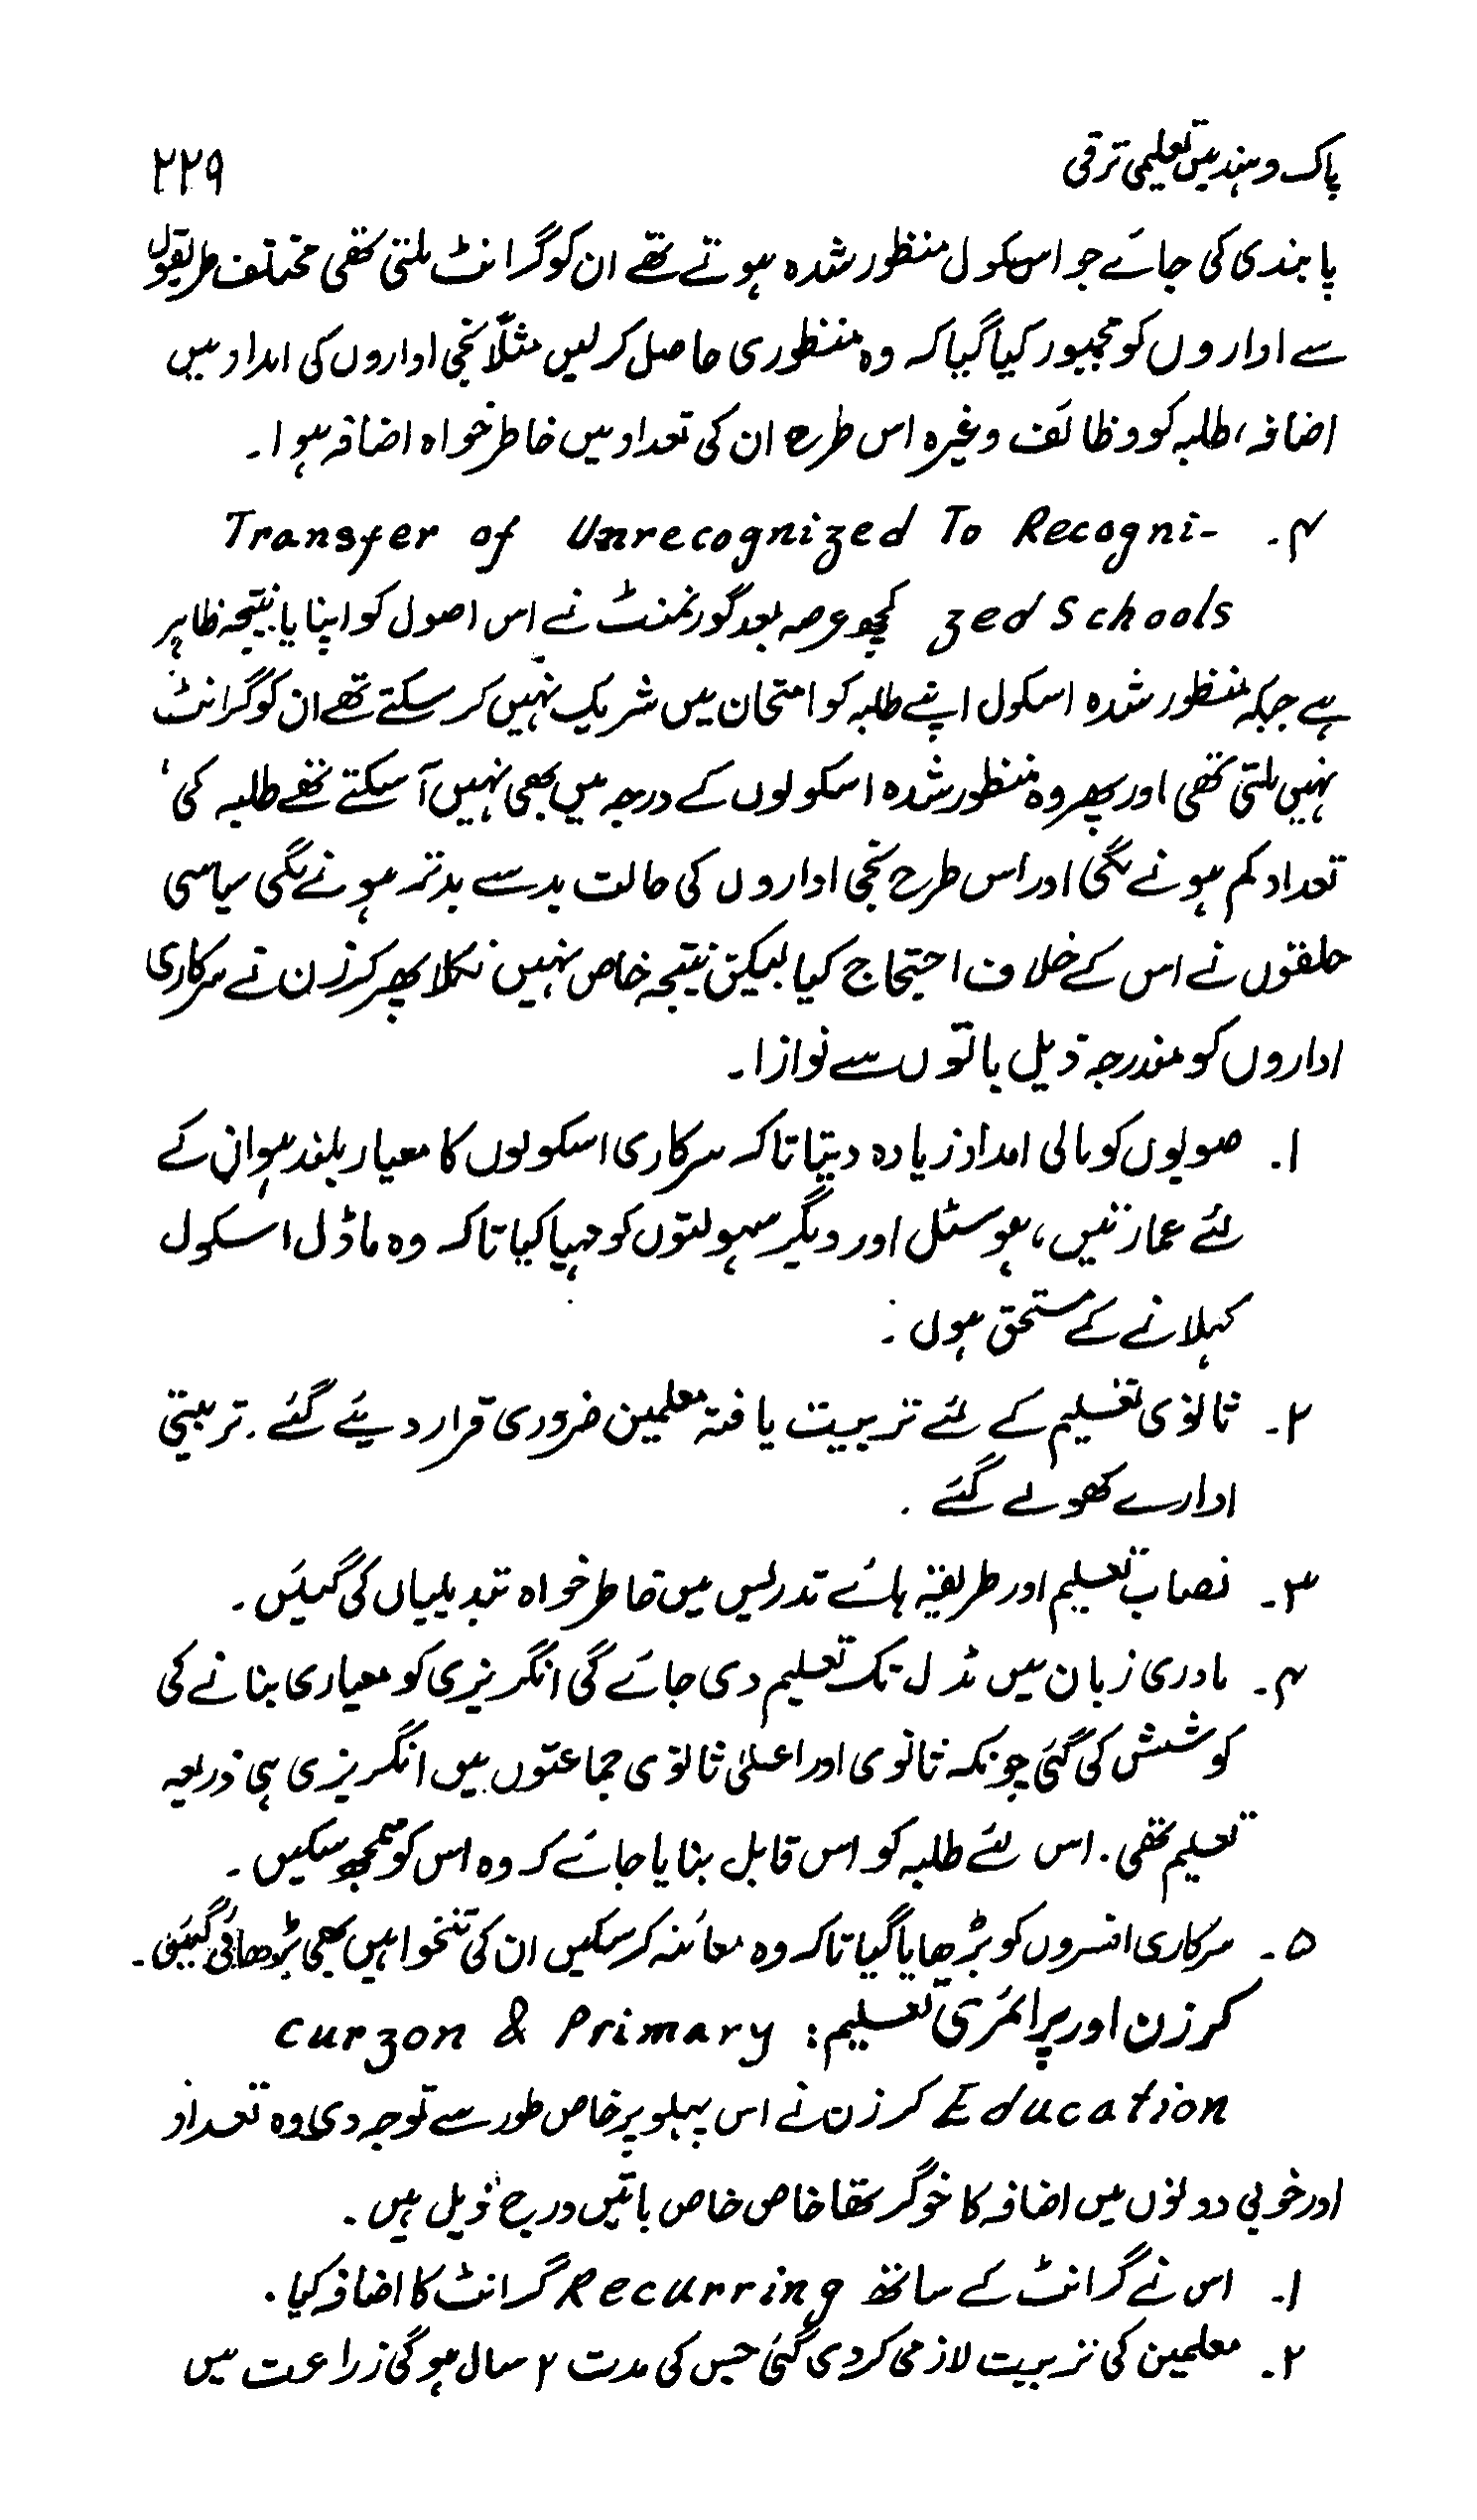 پاک و ہند میں تعلیمی ترقی ۲۲۹
پابندی کی جائے جو اسکول منظور شدہ ہوتے تھے ان کو گرانٹ ملتی تھی مختلف طریقوں
سے اداروں کو مجبور کیا گیا کہ وہ منظوری حاصل کرلیں مثلاً نجی اداروں کی امداد میں
اضافہ، طلبہ کو وظائف وغیرہ اس طرح ان کی تعداد میں خاطر خواہ اضافہ ہوا۔
۴۔ Transfer of Unrecognized To Recogni-
zed Schools کچھ عرصہ بعد گورنمنٹ نے اس اصول کو اپنایا نتیجہ ظاہر
ہے جبکہ منظور شدہ اسکول اپنے طلبہ کو امتحان میں شریک نہیں کرسکتے تھے ان کو گرانٹ
نہیں ملتی تھی اور پھر وہ منظور شدہ اسکولوں کے درجہ میں بھی نہیں آسکتے تھے طلبہ کی
تعداد کم ہونے لگی اور اس طرح نجی اداروں کی حالت بد سے بدتر ہونے لگی سیاسی
حلقوں نے اس کے خلاف احتجاج کیا لیکن نتیجہ خاص نہیں نکلا پھر کرزن نے سرکاری
اداروں کو مندرجہ ذیل باتوں سے نوازا۔
۱۔ صوبوں کو مالی امداد زیادہ دیتا تاکہ سرکاری اسکولوں کا معیار بلند ہو ان کے
لئے عمارتیں، ہوسٹل اور دیگر سہولتوں کو مہیا کیا تاکہ وہ ماڈل اسکول
کہلانے کے مستحق ہوں۔
۲۔ ثانوی تعلیم کے لئے تربیت یافتہ معلمین ضروری قرار دیئے گئے۔ تربیتی
ادارے کھولے گئے۔
۳۔ نصاب تعلیم اور طریقہ ہائے تدریس میں خاطر خواہ تبدیلیاں کی گیئں۔
۴۔ مادری زبان میں مڈل تک تعلیم دی جائے گی انگریزی کو معیاری بنانے کی
کوشش کی گئی چونکہ ثانوی اور اعلیٰ ثانوی جماعتوں میں انگریزی ہی ذریعہ
تعلیم تھی۔ اس لئے طلبہ کو اس قابل بنایا جائے کہ وہ اس کو سمجھ سکیں۔
۵۔ سرکاری افسروں کو بڑھایا گیا تاکہ وہ معائنہ کرسکیں ان کی تنخواہیں بھی بڑھائی گیئں۔
کرزن اور پرائمری تعلیم: Curzon & Primary
Education کرزن نے اس پہلو پر خاص طور سے توجہ دی وہ تعداد
اور خوبی دونوں میں اضافہ کا خوگر تھا خاص خاص باتیں درج ذیل ہیں۔
۱۔ اس نے گرانٹ کے ساتھ Recurring گرانٹ کا اضافہ کیا۔
۲۔ معلمین کی تربیت لازمی کردی گئی جس کی مدت ۲ سال ہوگی زراعت میں